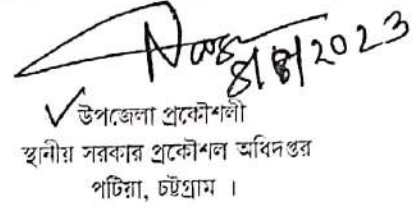 8/8/2023
উপজেলা প্রকৌশলী
স্থানীয় সরকার প্রকৌশল অধিদপ্তর
পটিয়া, চট্টগ্রাম ।